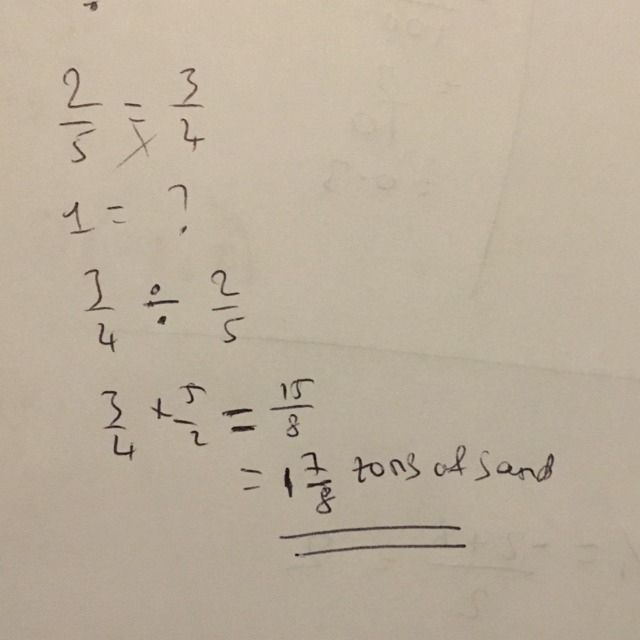 2/5 = 3/4
1 = ?
3/4 ÷ 2/5
3/4 × 5/2 = 15/8
= 1 7/8 tons of sand